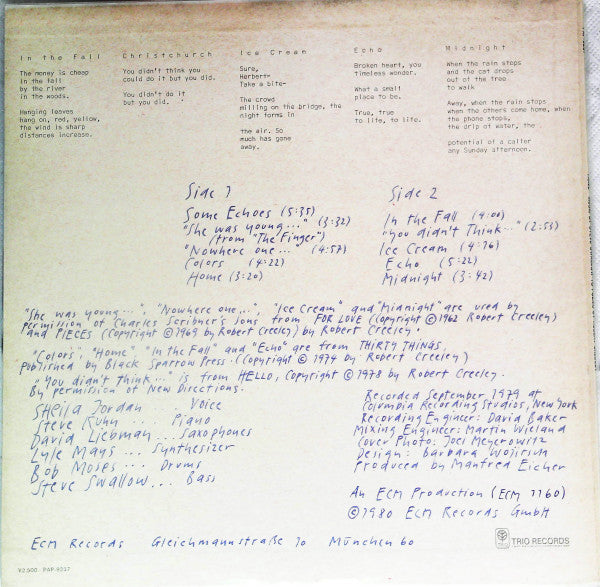 In the Fall
The money is cheap
in the fall
by the river
in the woods.
Hanging leaves
hang on, red, yellow,
the wind is sharp
distances increase.
Christchurch
You didn't think you
could do it but you did.
You didn't do it
but you did.
Ice Cream
Sure,
Herbert—
Take a bite—
The crowd
milling on the bridge, the
night forms in
the air. So
much has gone
away.
Echo
Broken heart, you
timeless wonder.
What a small
place to be.
True, true
to life, to life.
Midnight
When the rain stops
and the cat drops
out of the tree
to walk
Away, when the rain stops
when the others come home, when
the phone stops,
the drip of water, the
potential of a caller
any Sunday afternoon.
Side 1
Some Echoes (5:35)
"She was young..." (3:32)
(from "The Finger")
"Nowhere one..." (4:57)
Colors (4:22)
Home (3:20)
Side 2
In the Fall (4:00)
"You didn't Think..." (2:53)
Ice Cream (4:16)
Echo (5:22)
Midnight (3:42)
"She was young...", "Nowhere one...", "Ice Cream" and "Midnight" are used by
permission of Charles Scribner's Sons from FOR LOVE (Copyright ©1962 Robert Creeley)
and PIECES (Copyright ©1969 by Robert Creeley) by Robert Creeley.
"Colors", "Home", "In the Fall" and "Echo" are from THIRTY THINGS,
published by Black Sparrow Press. (Copyright © 1974 by Robert Creeley)
"You didn't think..." is from HELLO, Copyright © 1978 by Robert Creeley.
By permission of New Directions.
Sheila Jordan Voice
Steve Kuhn .. Piano
David Liebman... Saxophones
Lyle Mays ... Synthesizer
Bob Moses ... Drums
Steve Swallow... Bass
Recorded September 1979 at
Columbia Recording Studios, New York
Recording Engineer: David Baker
Mixing Engineer: Martin Wieland
Cover Photo: Joel Meyerowitz
Design: Barbara Wojirsch
Produced by Manfred Eicher
An ECM Production (ECM 1160)
©1980 ECM Records GmbH
ECM Records Gleichmannstraße 10 München 60
TRIO RECORDS
¥2,500 PAP-9217